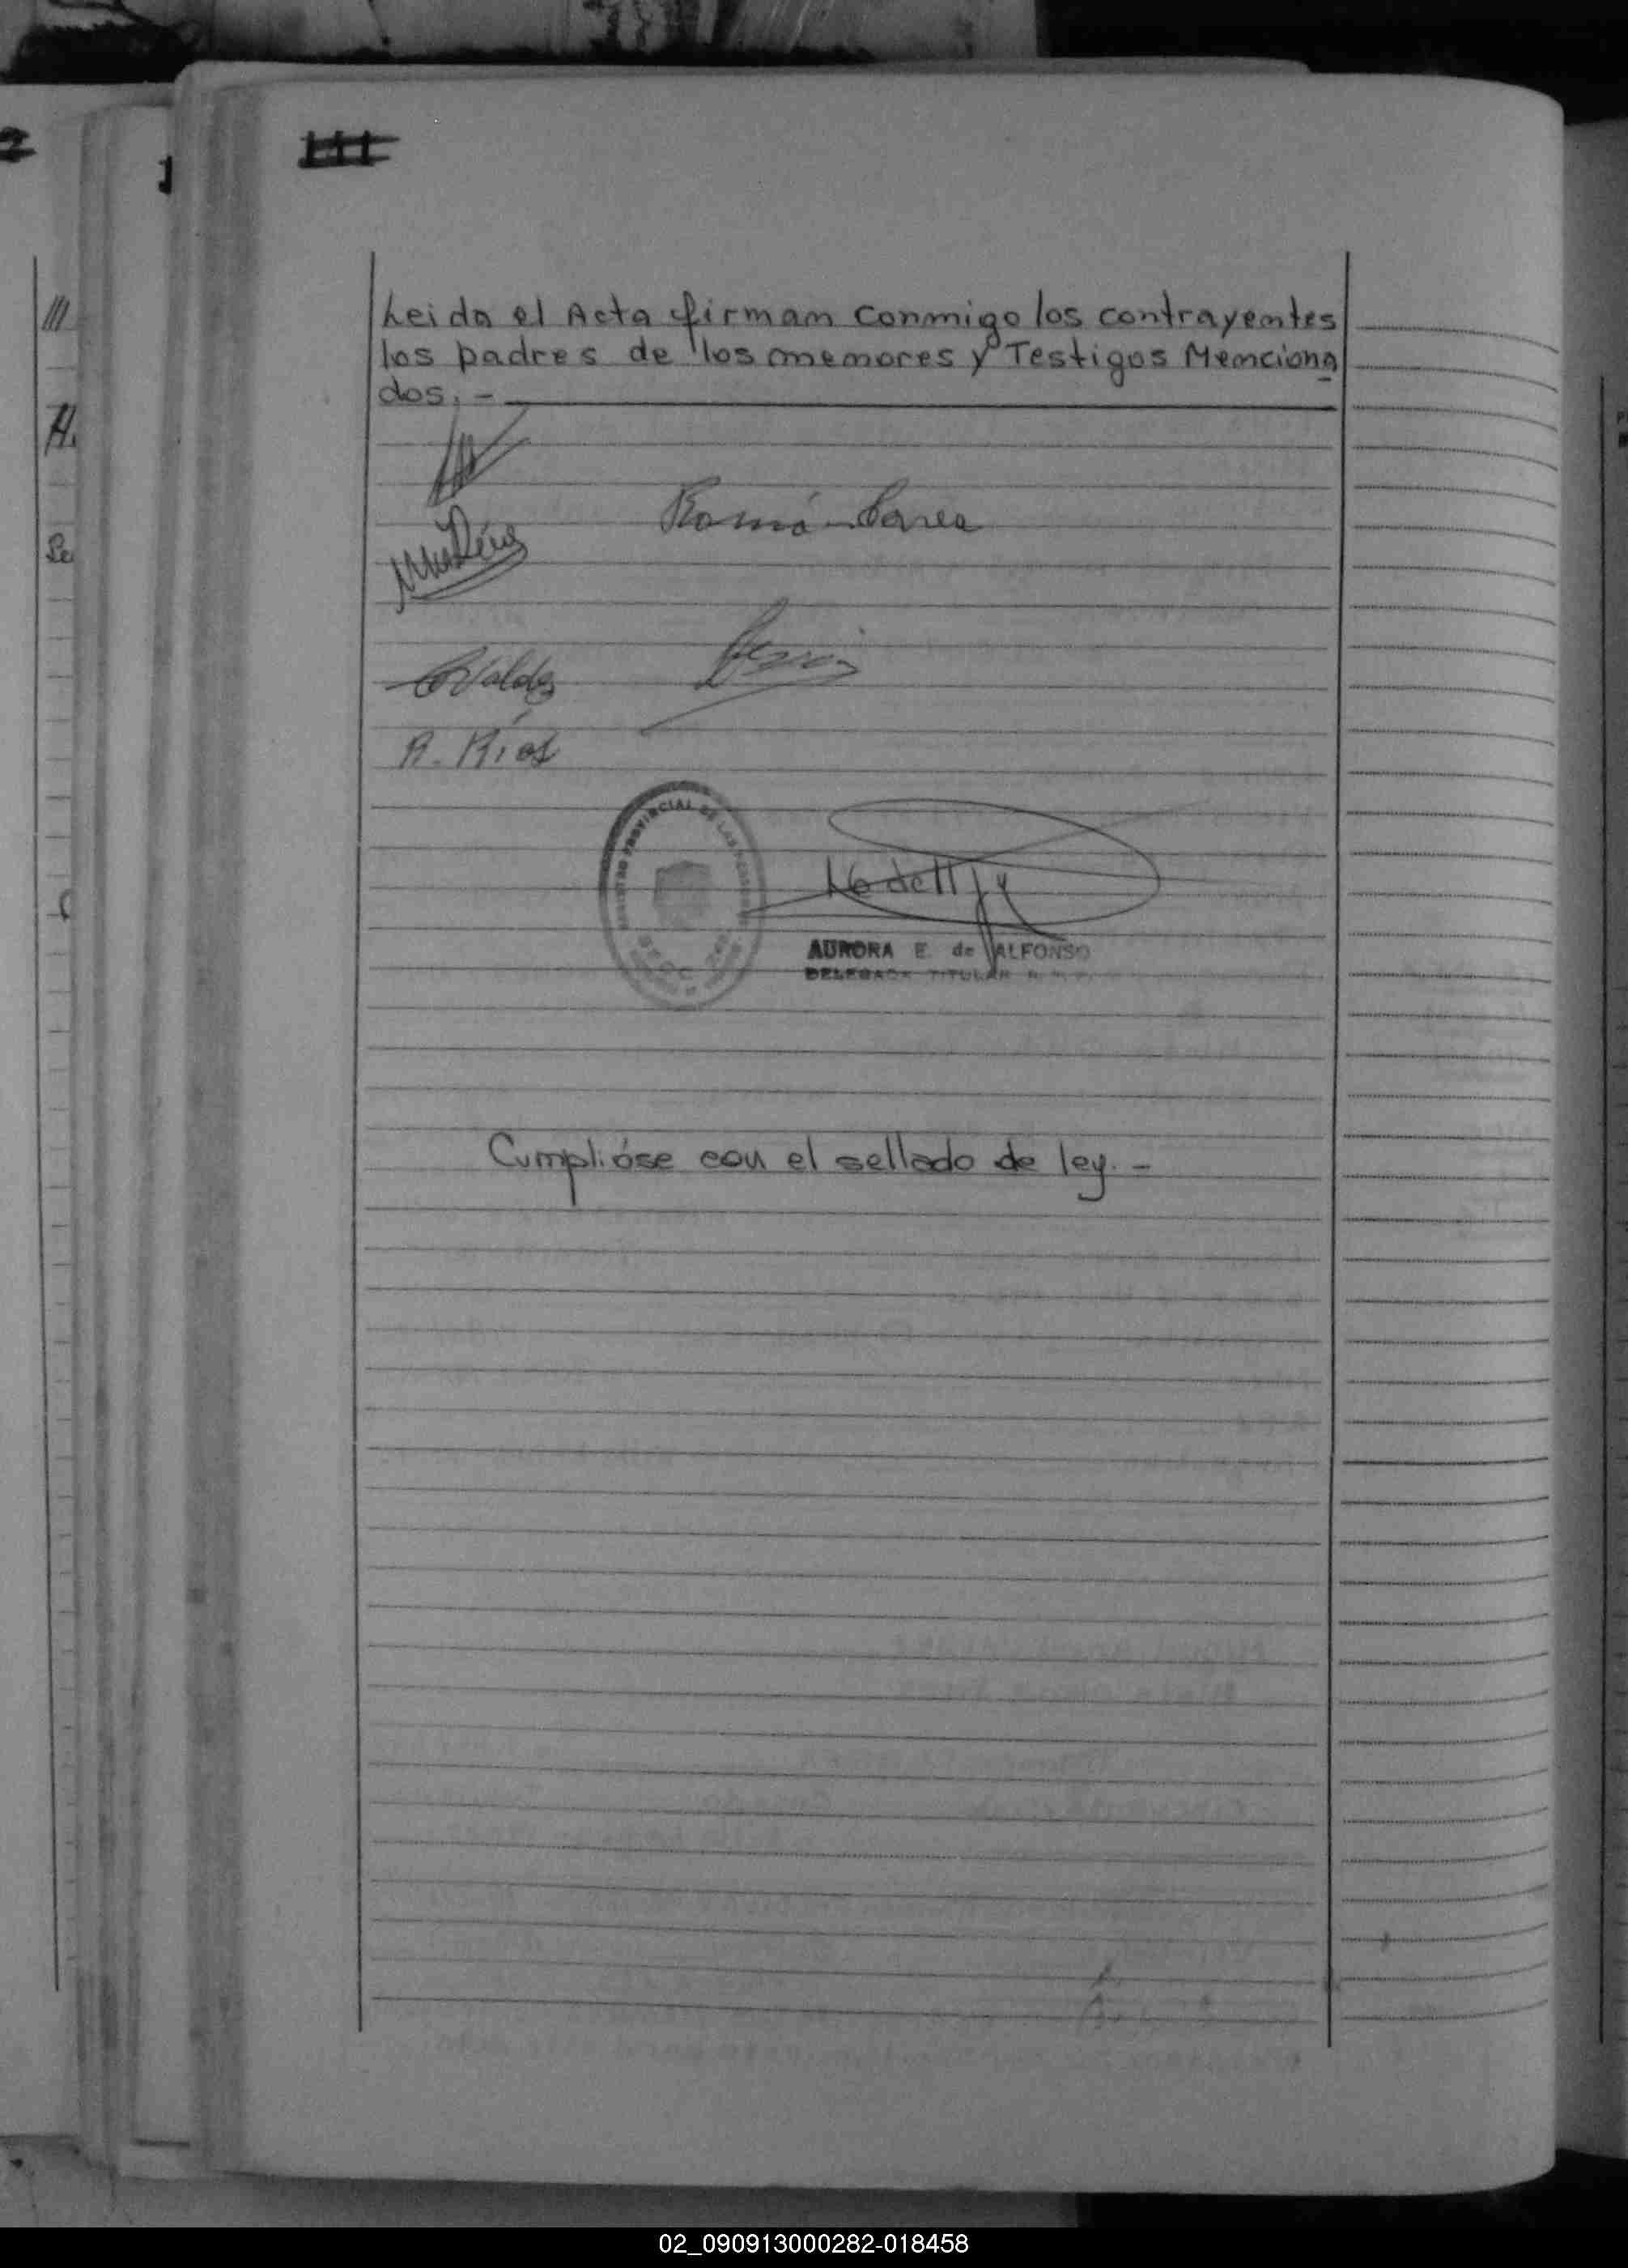 111
Leida el Acta firman conmigo los contrayentes
los padres de los menores y Testigos Menciona
dos. -
Valdez
R. Ríos
REGISTRO PROVINCIAL DE LAS PERSONAS
AURORA E. de ALFONSO
DELEGADA TITULAR R. P. P.
Cumplióse con el sellado de ley. -
02_090913000282-018458